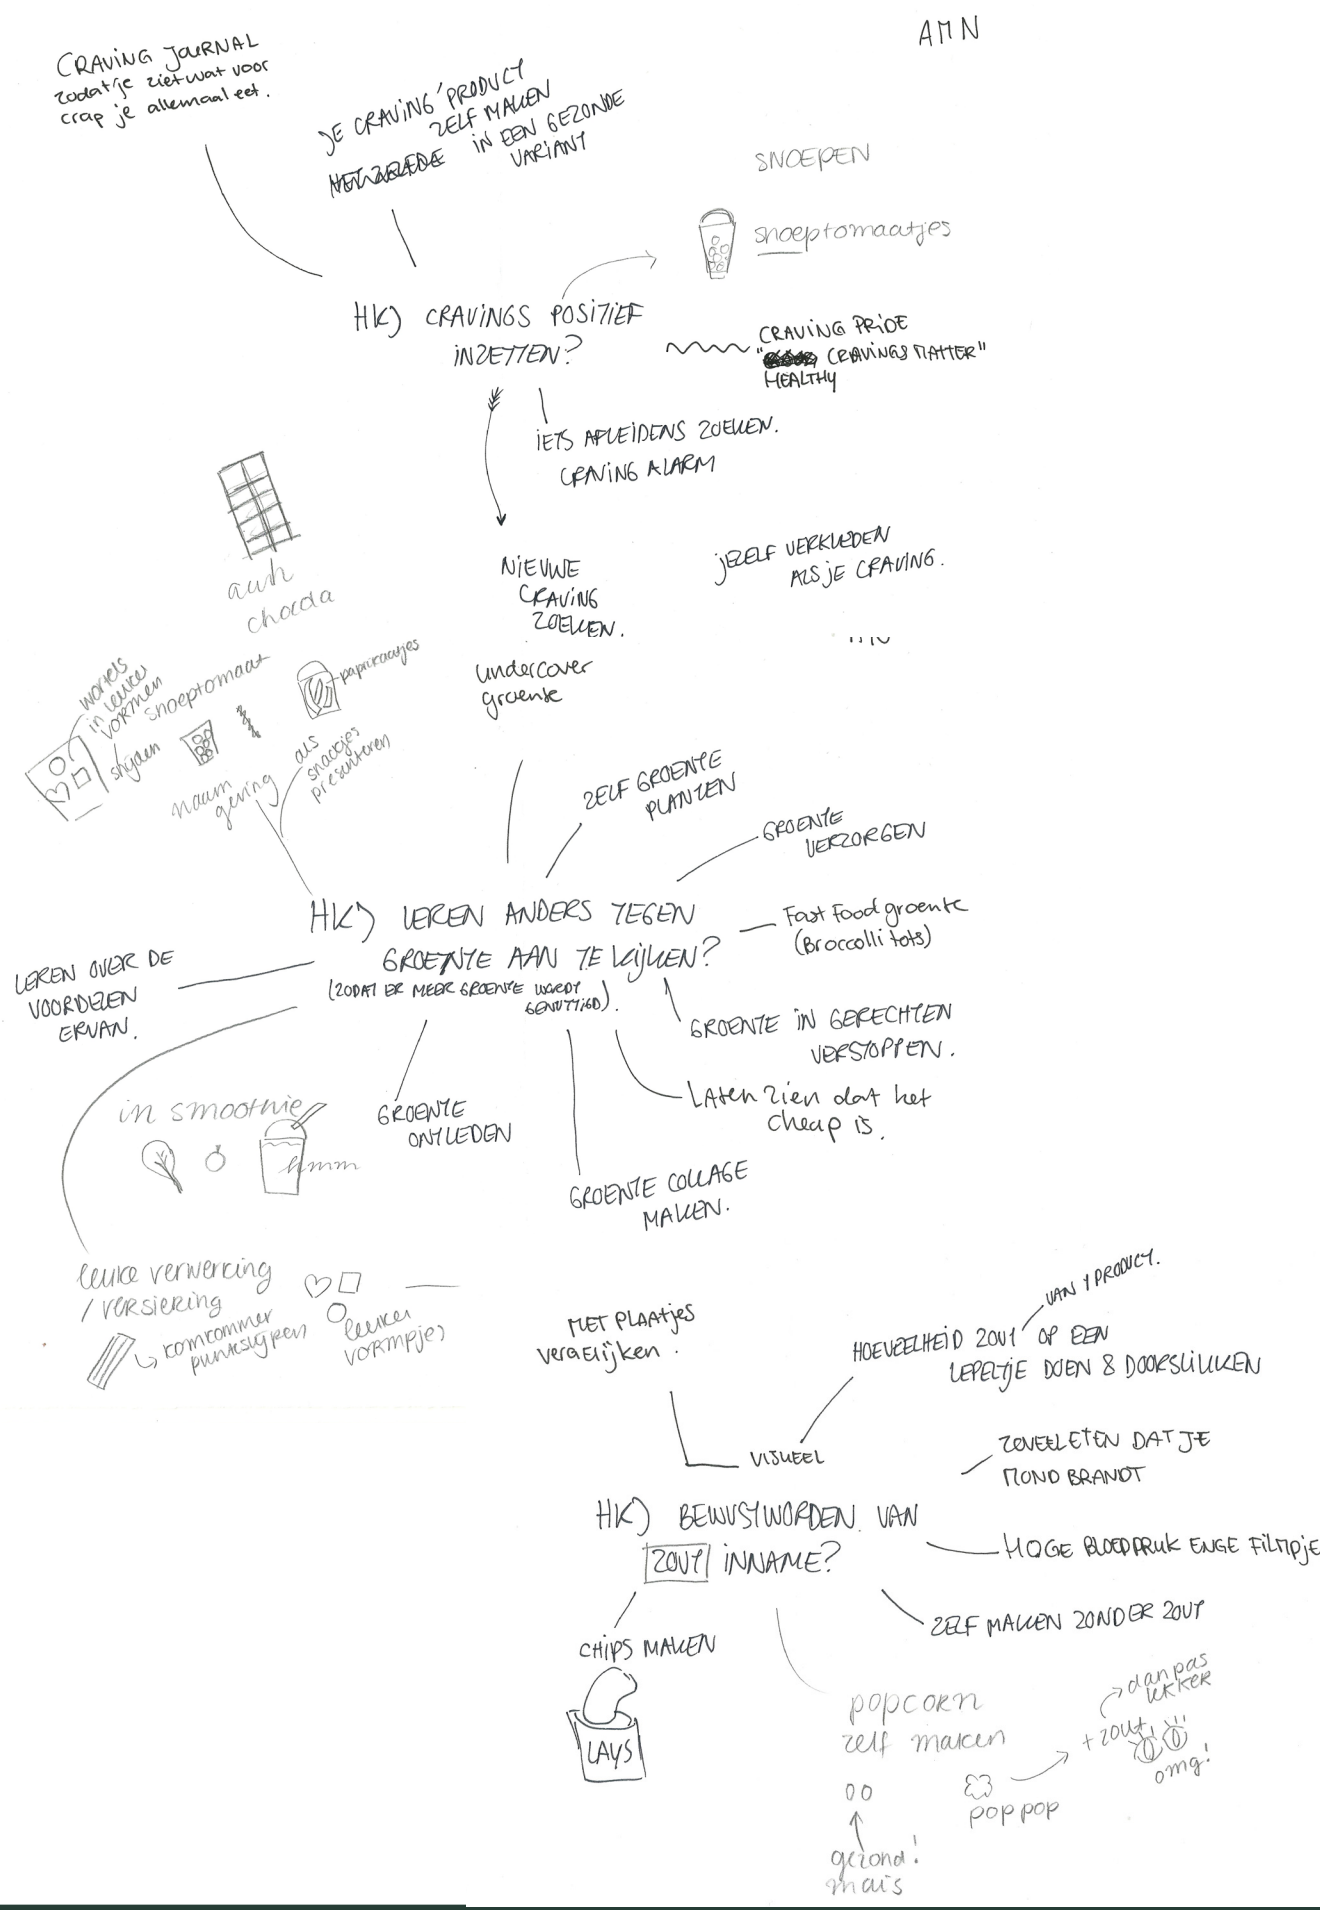 AMN
CRAVING JOURNAL
zodat je ziet wat voor
crap je allemaal eet.
JE CRAVING PRODUCT
ZELF MAKEN
IN EEN GEZONDE
VARIANT
SNOEPEN
snoeptomaatjes
HK) CRAVINGS POSITIEF
INZETTEN?
CRAVING PRIDE
" CRAVINGS MATTER"
HEALTHY
IETS AFLEIDENS ZOEKEN.
CRAVING ALARM
NIEUWE
CRAVING
ZOEKEN.
JEZELF VERKLEDEN
ALS JE CRAVING.
undercover
groente
wortels
in leuke
vormen
snijden
snoeptomaat
paprikaatjes
naam
geving
als
snackjes
presenteren
ZELF GROENTE
PLANTEN
GROENTE
VERZORGEN
HK) LEREN ANDERS TEGEN
GROENTE AAN TE KIJKEN?
(ZODAT ER MEER GROENTE WORDT
GENUTTIGD).
Fast Food groente
(Broccolli tots)
LEREN OVER DE
VOORDELEN
ERVAN.
GROENTE IN GERECHTEN
VERSTOPPEN.
Laten zien dat het
cheap is.
in smoothie
GROENTE
ONTLEDEN
GROENTE COLLAGE
MAKEN.
leuke verwerking
/ versiering
komkommer
puntslijpen
leuke
vormpjes
MET PLAATJES
vergelijken.
VAN 1 PRODUCT.
HOEVEELHEID ZOUT OP EEN
LEPELTJE DOEN & DOORSLIKKEN
VISUEEL
ZOVEEL ETEN DAT JE
MOND BRANDT
HK) BEWUSTWORDEN VAN
ZOUT INNAME?
HOGE BLOEDDRUK ENGE FILMPJE
ZELF MAKEN ZONDER ZOUT
CHIPS MAKEN
LAYS
popcorn
zelf maken
pop pop
+ zout
dan pas
lekker
omg!
gezond!
mais